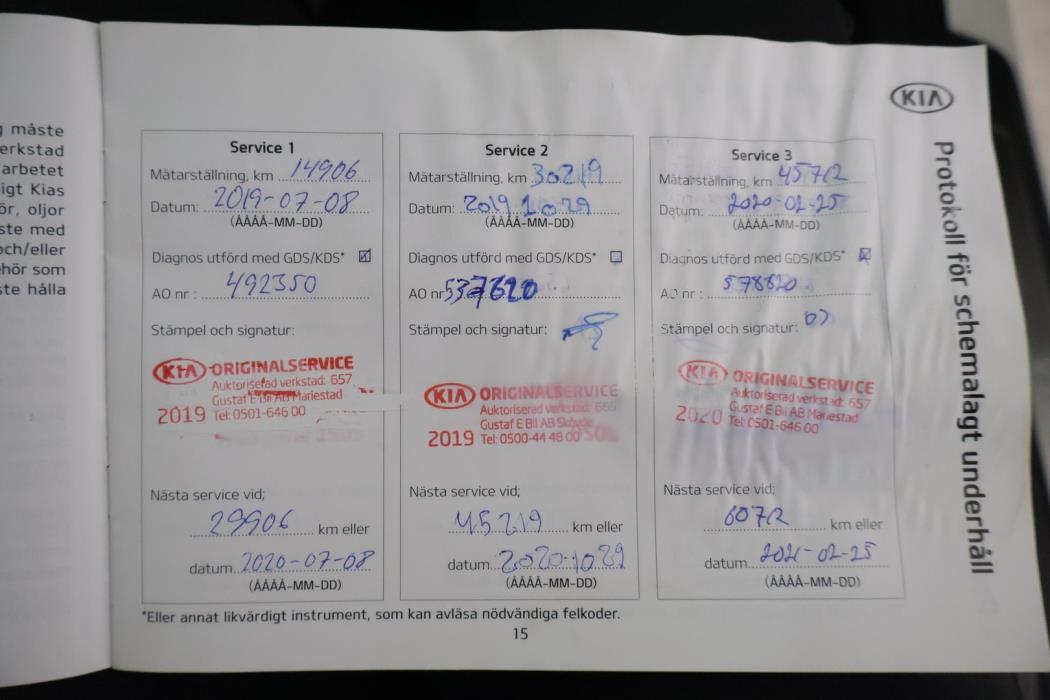 g måste
erkstad
arbetet
igt Kias
ör, oljor
ste med
och/eller
hör som
ste hålla
KIA
Protokoll för schemalagt underhåll
Service 1
Mätarställning, km 14906
Datum: 2019-07-08
(ÅÅÅÅ-MM-DD)
Diagnos utförd med GDS/KDS*
AO nr: 492350
Stämpel och signatur:
KIA ORIGINALSERVICE
Auktoriserad verkstad: 657
Gustaf E Bil AB Mariestad
2019 Tel: 0501-646 00
Nästa service vid;
29906 km eller
datum 2020-07-08
(ÅÅÅÅ-MM-DD)
Service 2
Mätarställning, km 30219
Datum: 2019 10 29
(ÅÅÅÅ-MM-DD)
Diagnos utförd med GDS/KDS*
AO nr 537620
Stämpel och signatur:
KIA ORIGINALSERVICE
Auktoriserad verkstad:
Gustaf E Bil AB Skövde
2019 Tel: 0500-44 48 00
Nästa service vid;
45219 km eller
datum 2020-10-29
(ÅÅÅÅ-MM-DD)
Service 3
Mätarställning, km 45712
Datum: 2020-02-25
(ÅÅÅÅ-MM-DD)
Diagnos utförd med GDS/KDS*
AO nr: 578620
Stämpel och signatur:
KIA ORIGINALSERVICE
Auktoriserad verkstad: 657
Gustaf E Bil AB Mariestad
2020 Tel: 0501-646 00
Nästa service vid;
60712 km eller
datum 2021-02-25
(ÅÅÅÅ-MM-DD)
*Eller annat likvärdigt instrument, som kan avläsa nödvändiga felkoder.
15